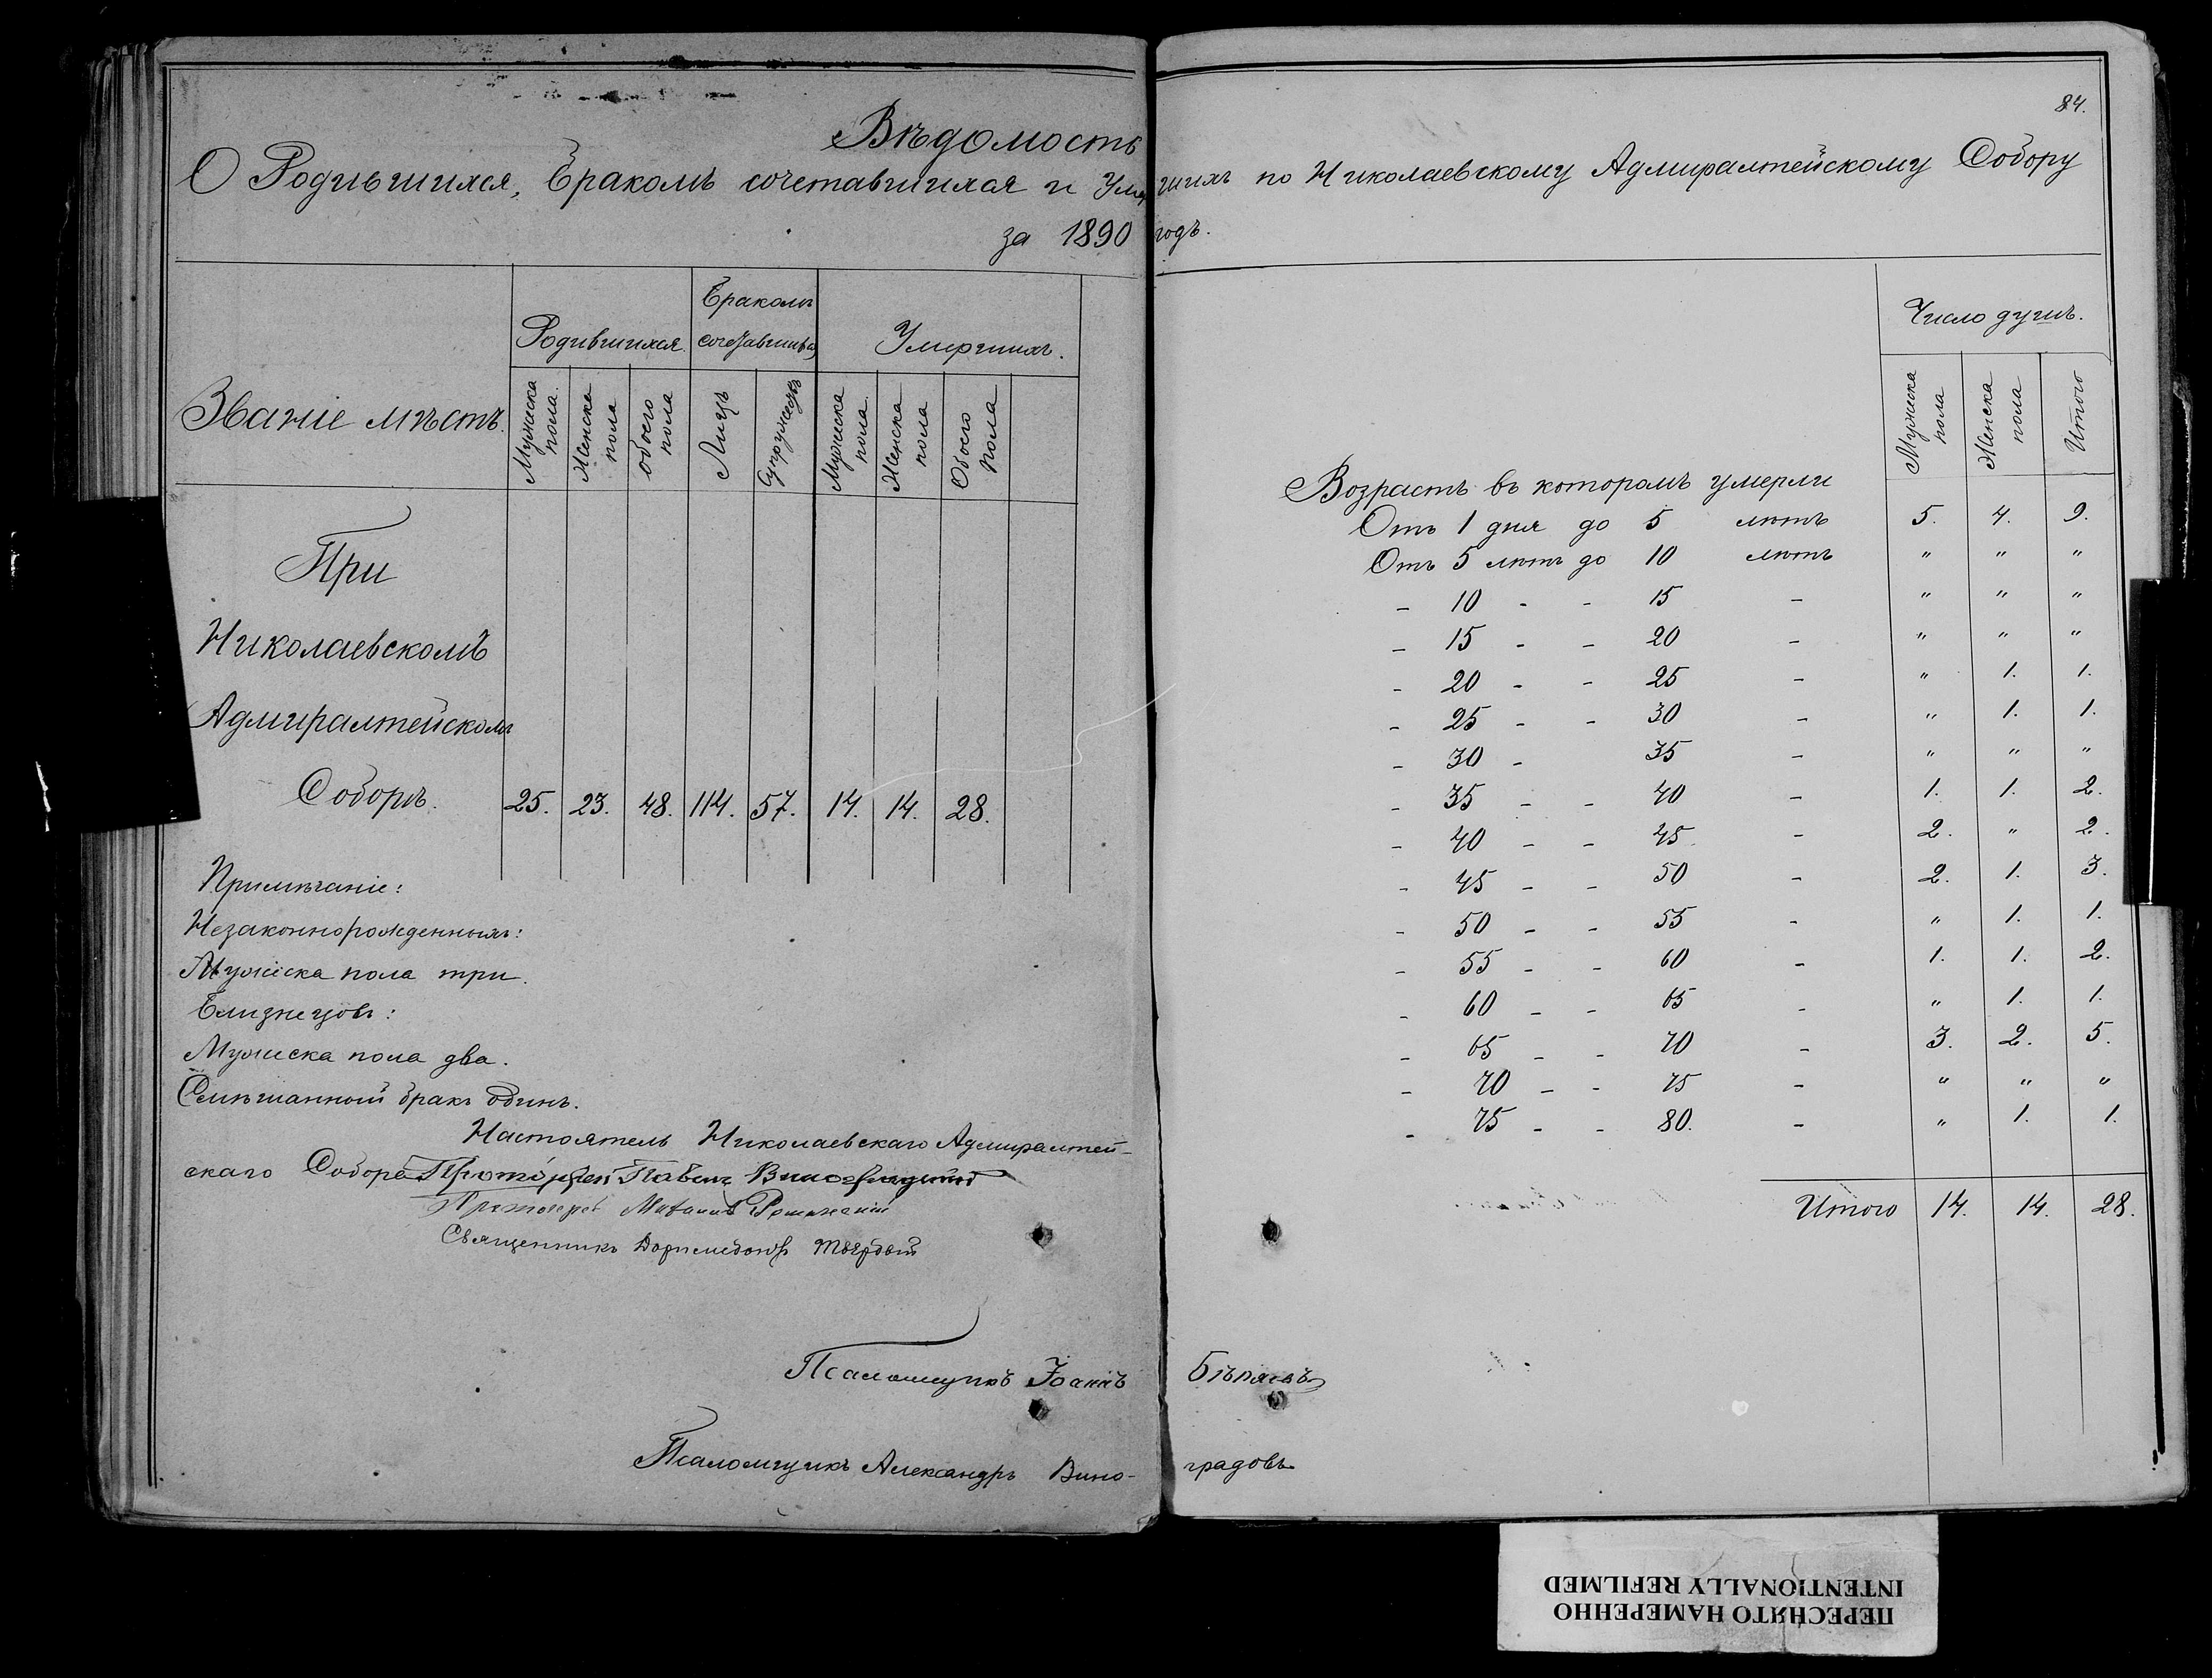 84.
Вѣдомость
О Родившихся, Бракомъ сочетавшихся и Умершихъ по Николаевскому Адмиралтейскому Собору
за 1890 годъ.
Званіе мѣстъ.
Родившихся.
Бракомъ сочетавшихся
Умершихъ.
Мужеска пола.
Женска пола
обоего пола
Лицъ
Супружествъ
Мужеска пола.
Женска пола
Обоего пола
При
Николаевскомъ
Адмиралтейскомъ
Соборѣ. 25. 23. 48. 114. 57. 14. 14. 28.
Примѣчаніе:
Незаконнорожденныхъ:
Мужеска пола три.
Близнецовъ:
Мужеска пола два.
Смѣшанный бракъ одинъ.
Настоятель Николаевскаго Адмиралтей-
скаго Собора Протоіерей Павелъ
Протоіерей Михаилъ
Священникъ Доримедонтъ Твердый
Псаломщикъ Іоаннъ Бѣляевъ
Псаломщикъ Александръ Вино-градовъ
Число душъ.
Мужеска пола
Женска пола
Итого
Возрастъ въ которомъ умерли
Отъ 1 дня до 5 лѣтъ 5. 4. 9.
Отъ 5 лѣтъ до 10 лѣтъ " " "
- 10 - - 15 - " " "
- 15 - - 20 - " " "
- 20 - - 25 - " 1. 1.
- 25 - - 30 - " 1. 1.
- 30 - 35 - " " "
- 35 - - 40 - 1. 1. 2.
- 40 - - 45 - 2. " 2.
- 45 - - 50 - 2. 1. 3.
- 50 - - 55 - " 1. 1.
- 55 - - 60 - 1. 1. 2.
- 60 - - 65 - " 1. 1.
- 65 - - 70 - 3. 2. 5.
- 70 - - 75 - " " "
- 75 - - 80. - " 1. 1.
Итого 14. 14. 28.
ПЕРЕСНЯТО НАМЕРЕННО
INTENTIONALLY REFILMED